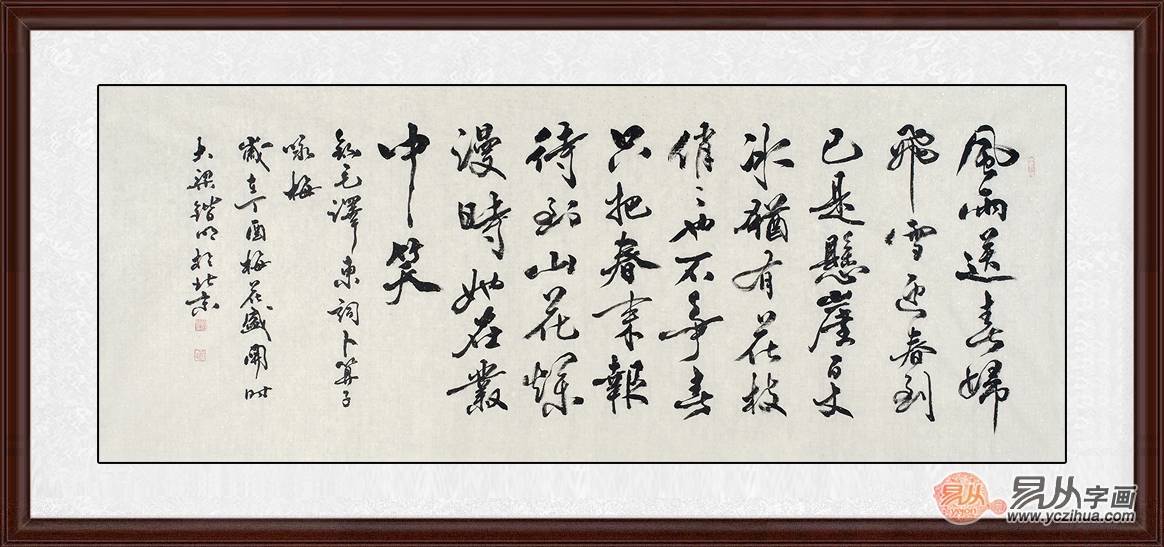 風雨送春歸
飛雪迎春到
已是懸崖百丈
冰猶有花枝
俏〻也不爭春
只把春来報
待到山花爛
漫時她在叢
中笑
錄毛澤東詞卜算子
咏梅
歲在丁酉梅花盛開時
大梁鍇明於北京
易从
易从字画
www.yczihua.com